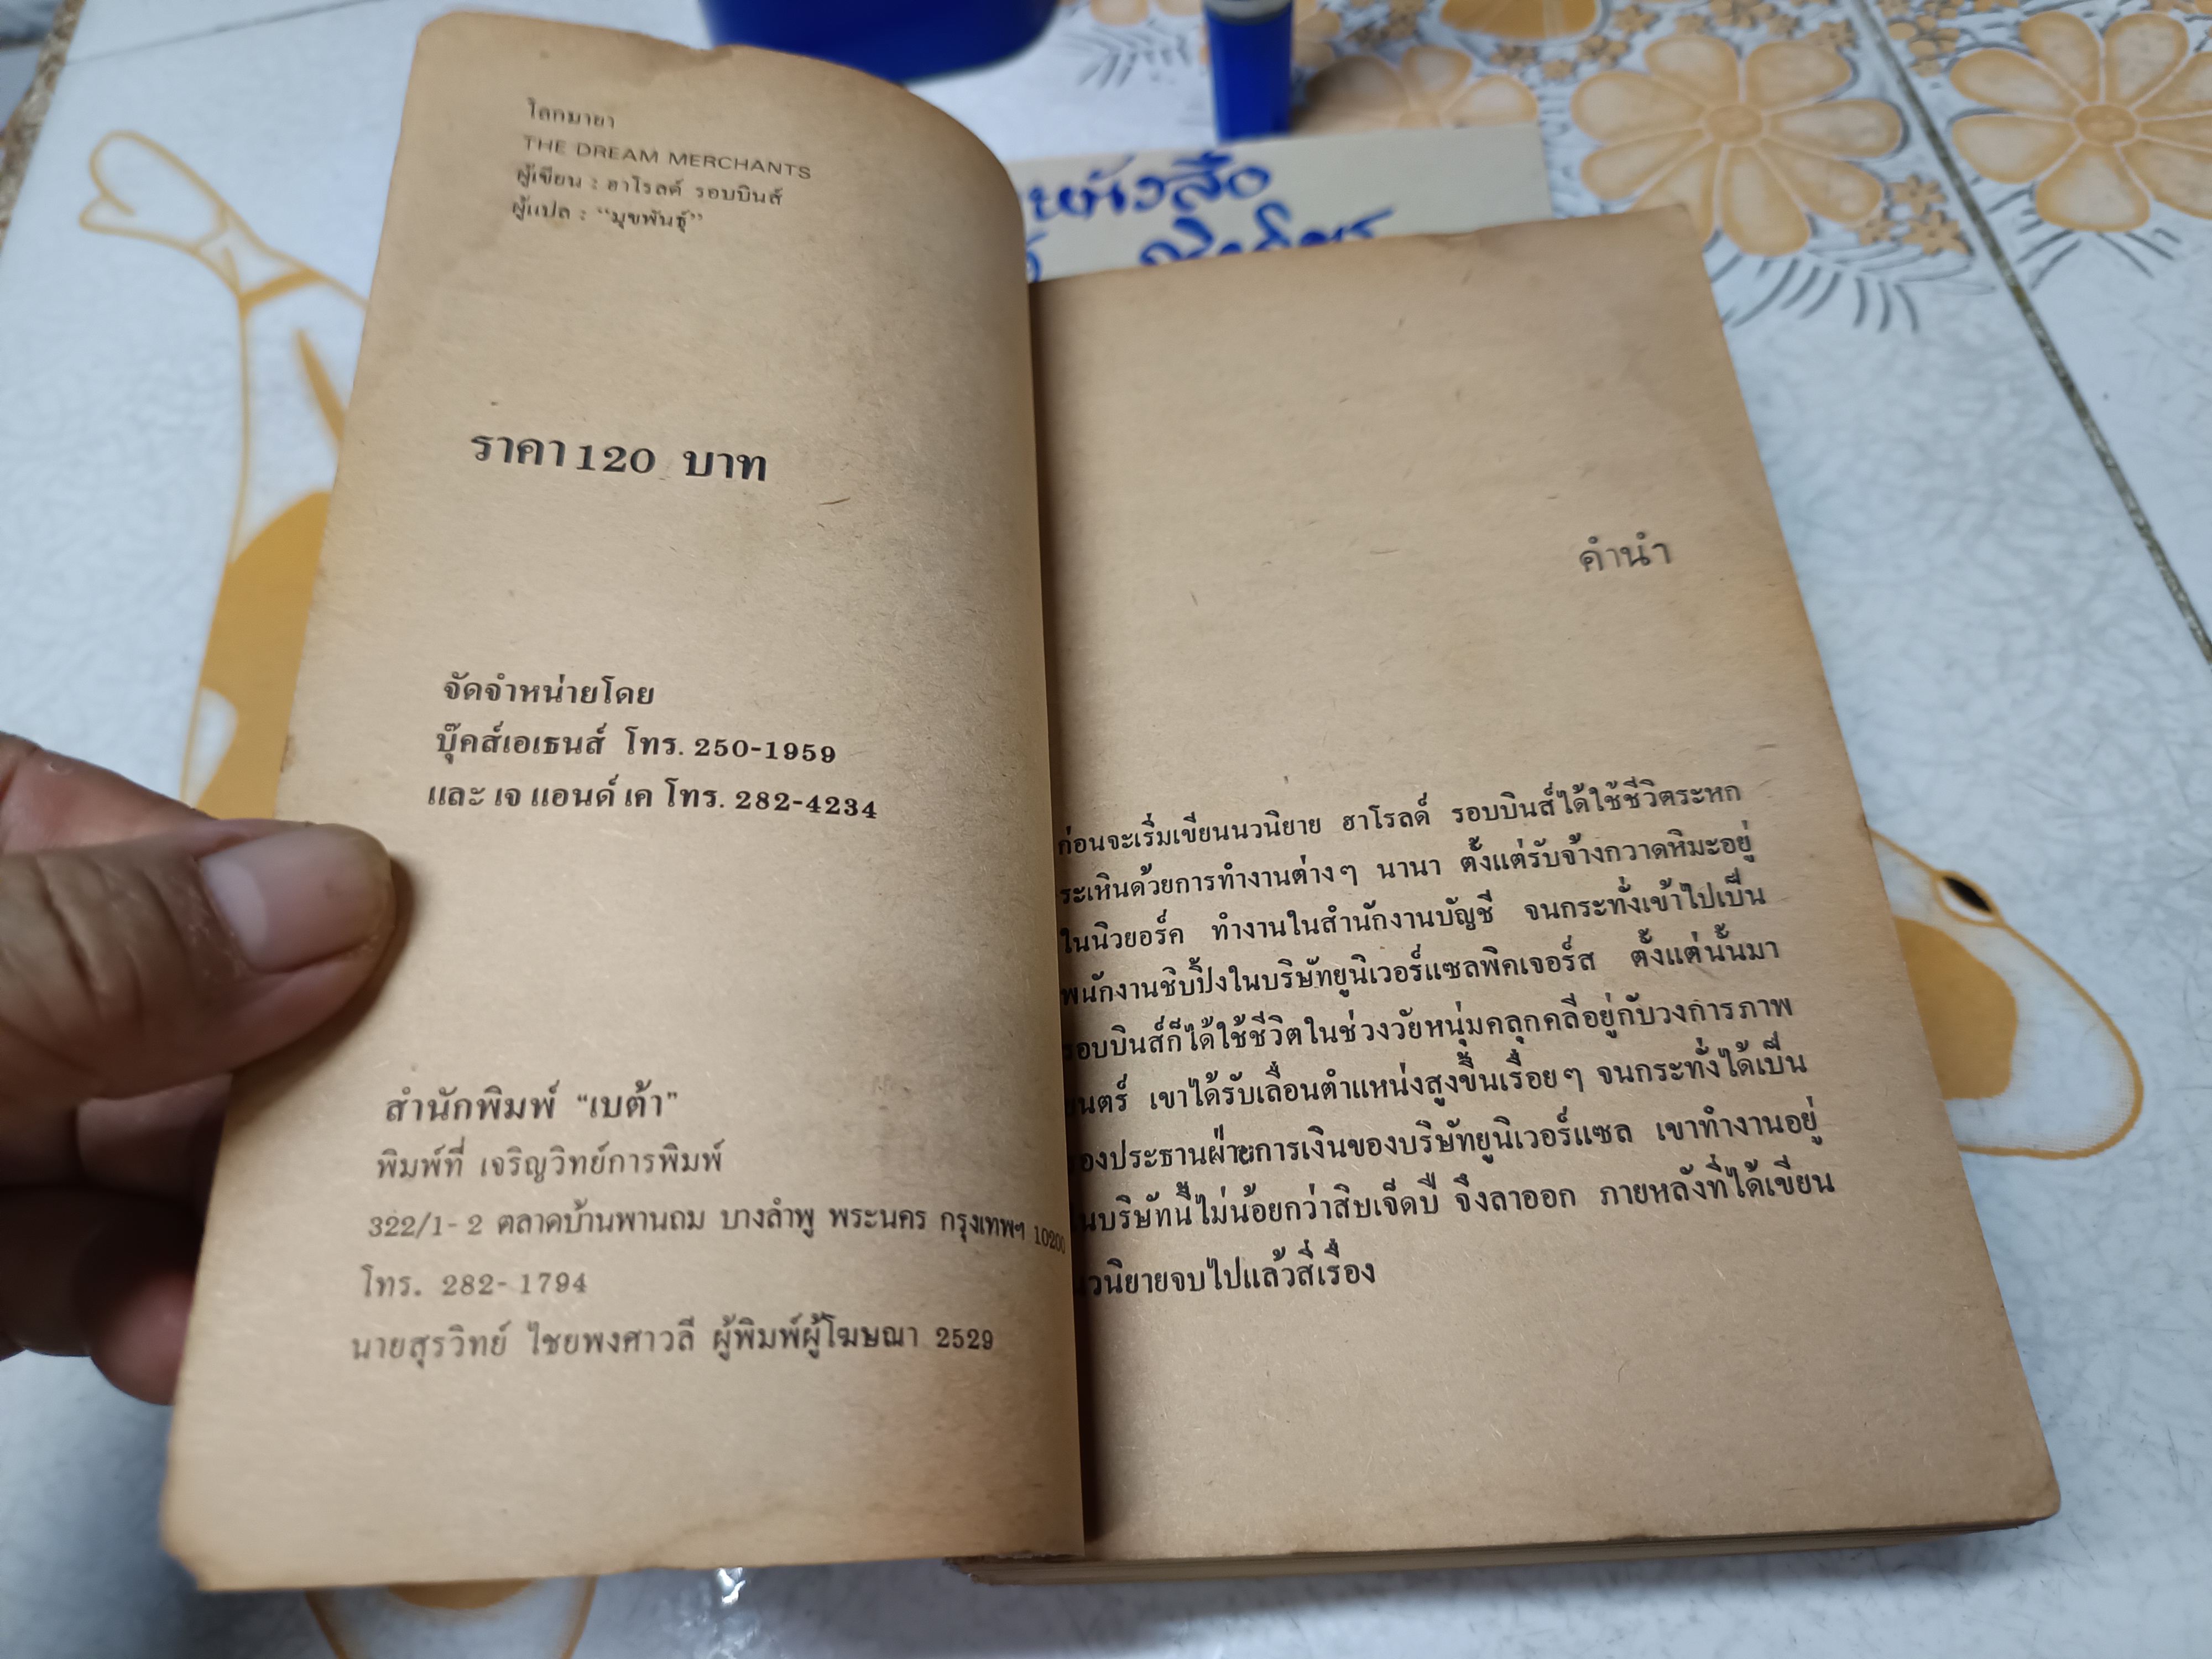 โลกมายา
THE DREAM MERCHANTS
ผู้เขียน : ฮาโรลด์ รอบบินส์
ผู้แปล : “มุขพันธุ์”
ราคา 120 บาท
จัดจำหน่ายโดย
บุ๊คส์เอเธนส์ โทร. 250-1959
และ เจ แอนด์ เค โทร. 282-4234
สำนักพิมพ์ “เบต้า”
พิมพ์ที่ เจริญวิทย์การพิมพ์
322/1-2 ตลาดบ้านพานถม บางลำพู พระนคร กรุงเทพฯ 10200
โทร. 282-1794
นายสุรวิทย์ ไชยพงศาวลี ผู้พิมพ์ผู้โฆษณา 2529
หนังสือ
คำนำ
ก่อนจะเริ่มเขียนนวนิยาย ฮาโรลด์ รอบบินส์ได้ใช้ชีวิตระหก
ระเหินด้วยการทำงานต่างๆ นานา ตั้งแต่รับจ้างกวาดหิมะอยู่
ในนิวยอร์ค ทำงานในสำนักงานบัญชี จนกระทั่งเข้าไปเป็น
พนักงานชิบปิ้งในบริษัทยูนิเวอร์แซลพิคเจอร์ส ตั้งแต่นั้นมา
รอบบินส์ก็ได้ใช้ชีวิตในช่วงวัยหนุ่มคลุกคลีอยู่กับวงการภาพ
ยนตร์ เขาได้รับเลื่อนตำแหน่งสูงขึ้นเรื่อยๆ จนกระทั่งได้เป็น
รองประธานฝ่ายการเงินของบริษัทยูนิเวอร์แซล เขาทำงานอยู่
ในบริษัทนี้ไม่น้อยกว่าสิบเจ็ดปี จึงลาออก ภายหลังที่ได้เขียน
นวนิยายจบไปแล้วสี่เรื่อง